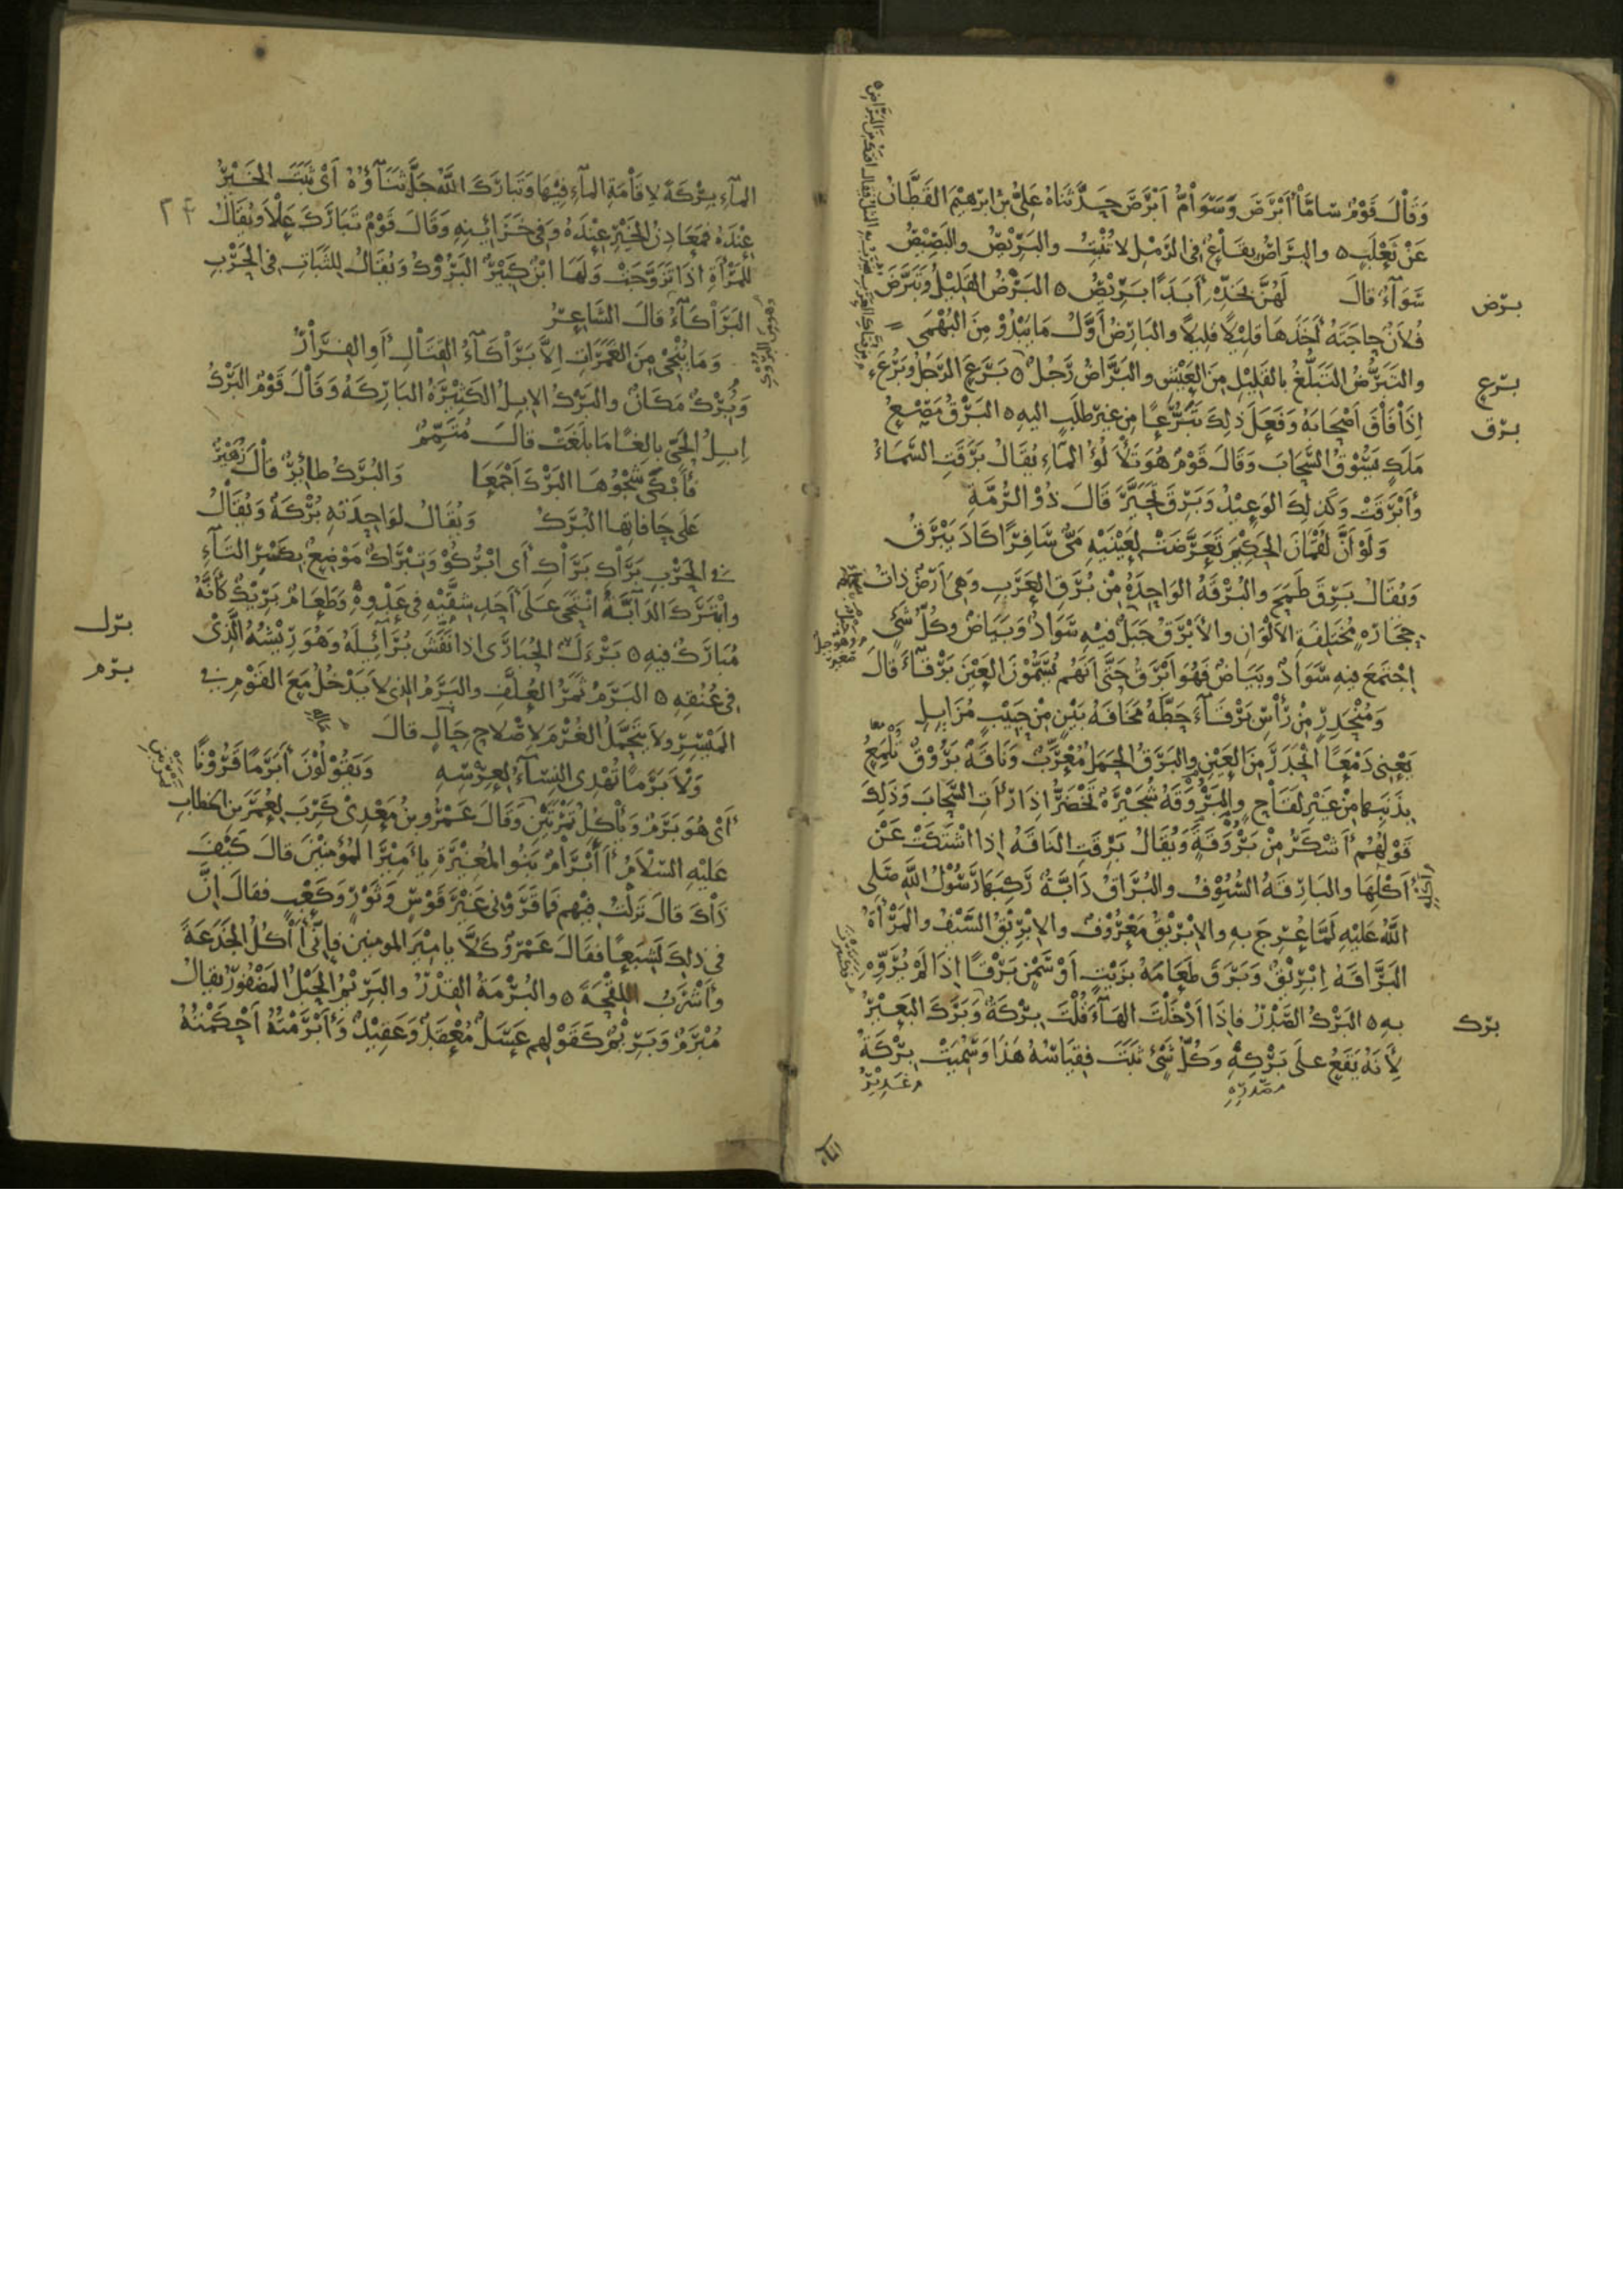 وَقَالَ قَوْمٌ سَامَّا أَبْرَصَ وَسَوَامُّ أَبْرَصَ حَدَّثَنَاهُ عَلِيُّ بْنُ إبْرٰهِيْمَ القَطَّانُ
عَنْ ثَعْلَبٍ ٥ والبِرَاصُ بِقَاعٌ فى الرَّمْلِ لا تُنْبِتُ والبَرِيْصُ والبَصِيْصُ
سَوَآءٌ قالَ لَهُنَّ بِخَدِّهِ أَبَدًا بَرِيْصُ ٥ البَرْضُ القَلِيْلُ وَتَبَرَّضَ
برض
فُلانٌ حَاجَتَهُ أَخَذَهَا قَلِيْلًا قَلِيلًا والبَارِضُ أَوَّلُ مَا يَبْدُوْ مِنَ البُهْمَى
والتَبَرُّضُ التَبَلُّغُ بالقَلِيْلِ مِنَ العَيْشِ والبَرَّاضُ رَجُلٌ ٥ بَرَعَ الرَّجُلُ وَبَرُعَ
برع
إِذَا فَاقَ أَصْحَابَهُ وَفَعَلَ ذلِكَ تَبَرُّعًا مِنْ غيرِ طلَبٍ اليهِ ٥ البَرْقُ مَصْعُ
برق
مَلَكٍ يَسُوْقُ السَّحَابَ وَقَالَ قَوْمٌ هُوَ تَلَأْلُؤُ المَاءِ يُقَالُ بَرَقَتِ السَّمَاءُ
وَأَبْرَقَتْ وَكَذلِكَ الوَعِيْدُ وَبَرِقَ تَحَيَّرَ قَالَ ذُوْ الرُّمَّةِ
وَلَوْ أَنَّ لُقْمَانَ الحَكِيْمَ تَعَرَّضَتْ لِعَيْنَيْهِ مَىٌّ سَافِرًا كَادَ يَبْرَقُ
وَيُقَالُ بَرِقَ طَمَحَ والبُرْقَةُ الوَاحِدَةُ مِنْ بُرَقِ العَرَبِ وَهِىَ أَرْضٌ ذاتُ
حِجَارَةٍ مُخْتَلِفَةِ الأَلْوَانِ والأَبْرَقُ جَبَلٌ فيْهِ سَوَادٌ وَبَيَاضٌ وكُلُّ شَىْءٍ
اجْتَمَعَ فيهِ سَوَادٌ وبَيَاضٌ فَهُوَ أَبْرَقُ حَتَّى أَنَّهُم يُسَمُّوْنَ العَيْنَ بَرْقَآءَ قالَ
وَمُنْحَدِرٍ مِنْ رَأْسِ بَرْقَآءَ حَطَّهُ مَخَافَةُ بَيْنٍ مِنْ حَبِيْبٍ مُزَايِلِ
يَعْنِى دَمْعًا انْحَدَرَ مِنَ العَيْنِ والبَرَقُ الحَمَلُ مُعْرَبٌ وَنَاقَةٌ بَرُوْقٌ تَلْمَعُ
بِذَنَبِهَا مِنْ غَيْرِ لَقَاحٍ والبَرْوَقَةُ شُجَيْرَةٌ تَخْضَرُّ إذَا رَأَتِ السَّحَابَ وَذَلِكَ
قَوْلُهُمْ أَشْكَرُ مِنْ بَرْوَقَةٍ وَيُقَالُ بَرِقَتِ النَاقَةُ إِذا اشْتَكَتْ عَنْ
أَكْلِهَا والبَارِقَةُ السُّيُوْفُ والبُرَاقُ دَابَّةٌ رَكِبَهَا رَسُوْلُ اللّٰهِ صَلَّى
اللّٰهُ عَلَيْهِ لَمَّا عُرِجَ بهِ والإِبْرِيْقُ مَعْرُوْفٌ والإِبْرِيْقُ السَّيْفُ والمَرْأَةُ
البَرَّاقَةُ إِبْرِيْقٌ وَبَرَقَ طَعَامَهُ بزَيْتٍ أَوْ سَمْنٍ بَرْقًا إِذَا لَمْ يُرَوِّهِ
بهِ ٥ البَرْكُ الصَّدْرُ فإِذَا أَدْخَلْتَ الهَآءَ قُلْتَ بِرْكَةٌ وَبَرَكَ البَعِيْرُ
برك
لِأَنَّهُ يَقَعُ علَى بَرْكِهِ وَكُلُّ شَىْءٍ ثَبَتَ فقِيَاسُهُ هَذَا وَسُمِّيَتْ بِرْكَةُ
الماء
المآءِ بِرْكَةً لِإِقَامَةِ المآءِ فِيْهَا وَتَبَارَكَ اللّٰهُ جَلَّ ثَنَآؤُهُ أَىْ ثَبَتَ الخَيْرُ
عِنْدَهُ فَمَعَادِنُ الخَيْرِ عِنْدَهُ وَفى خَزَائِنِهِ وَقَالَ قَوْمٌ تَبَارَكَ عَلَا وَيُقَالُ
للمَرْأَةِ إِذَا تَزَوَّجَتْ وَلَهَا ابْنٌ كَبِيْرٌ البَرُوْكُ وَيُقَالُ لِلثَّبَاتِ فى الحَرْبِ
البَرَاكَآءُ قالَ الشَاعِرُ
وَمَا يُنْجِى مِنَ الغَمَرَاتِ إِلَّا بَرَاكَآءُ القِتَالِ أَوِ الفِرَارُ
وَبُرْكٌ مَكَانٌ والبَرْكُ الإِبِلُ الكَثِيْرَةُ البَارِكَةُ وَقَالَ قَوْمٌ البَرْكُ
إِبِلُ الحَىِّ بالِغًا مَا بَلَغَتْ قالَ مُتَمِّمٌ
فَأَبْكَى شَجْوُهَا البَرْكَ أَجْمَعَا والبُرَكُ طائِرٌ قالَ زُهَيْرٌ
عَلَى حَافَاتِهَا البُرَكُ وَيُقَالُ لوَاحِدَتِهِ بُرْكَةٌ وَيُقَالُ
فى الحَرْبِ بَرَاكِ بَرَاكِ أَى ابْرُكُوْ وَتِبْرَاكٌ مَوْضِعٌ بكَسْرِ التَآءِ
وابْتَرَكَ الدَآبَّةُ انْتَحَى عَلَى أَحَدِ شِقَّيْهِ فى عَدْوِهِ وَطَعَامٌ بَرِيْكٌ كَأَنَّهُ
مُبَارَكٌ فيهِ ٥ بَرْءَلَ الحُبَارَى إذا نَفَشَ بُرَائِلَهُ وَهُوَ رِيْشُهُ الَّذِىْ
برل
فى عُنُقِهِ ٥ البَرَمُ ثَمَرُ العُلَّفِ والبَرَمُ الذِى لا يَدْخُلُ مَعَ القَوْمِ فى
برم
المَيْسِرِ ولَا يَتَحَمَّلُ الغُرْمَ لإِصْلاحِ حَالٍ قالَ
وَلَا بَرَمًا تُهْدِى النِسَآءُ لِعِرْسِهِ وَيَقُوْلُوْنَ أَبَرَمًا قَرُوْنًا
أَىْ هُوَ بَرَمٌ وَيَأْكُلُ تَمْرَتَيْنِ وَقَالَ عَمْرُو بنُ مَعْدِىْ كَرِبَ لِعُمَرَ بنِ الخطابِ
عَلَيْهِ السّلامُ أَأَبْرَامٌ بَنُو المُغِيْرَةِ يا أَمِيْرَ المُؤْمِنِيْنَ قالَ كَيْفَ
ذَاكَ قالَ نَزَلْتُ فيْهِم فَمَا قَرَوْنِى غَيْرَ قَوْسٍ وَثَوْرٍ وَكَعْبٍ فقالَ إِنَّ
فى ذلِكَ لَشِبَعًا فقالَ عَمْرٌو كَلَّا يا مِيْرَ المومنينَ فإِنِّى أَأْكُلُ الجَذَعَةَ
وَأَشْرَبُ اللِقْحَةَ ٥ والبُرْمَةُ القِدْرُ والبَرِيْمُ الحَبْلُ المَضْفُوْرُ يقالُ
مُبْرَمٌ وَبَرِيْمٌ كَقَوْلِهِم عَسَلٌ مُعْقَدٌ وَعَقِيْدٌ وَأَبْرَمْتُهُ أَحْكَمْتُهُ